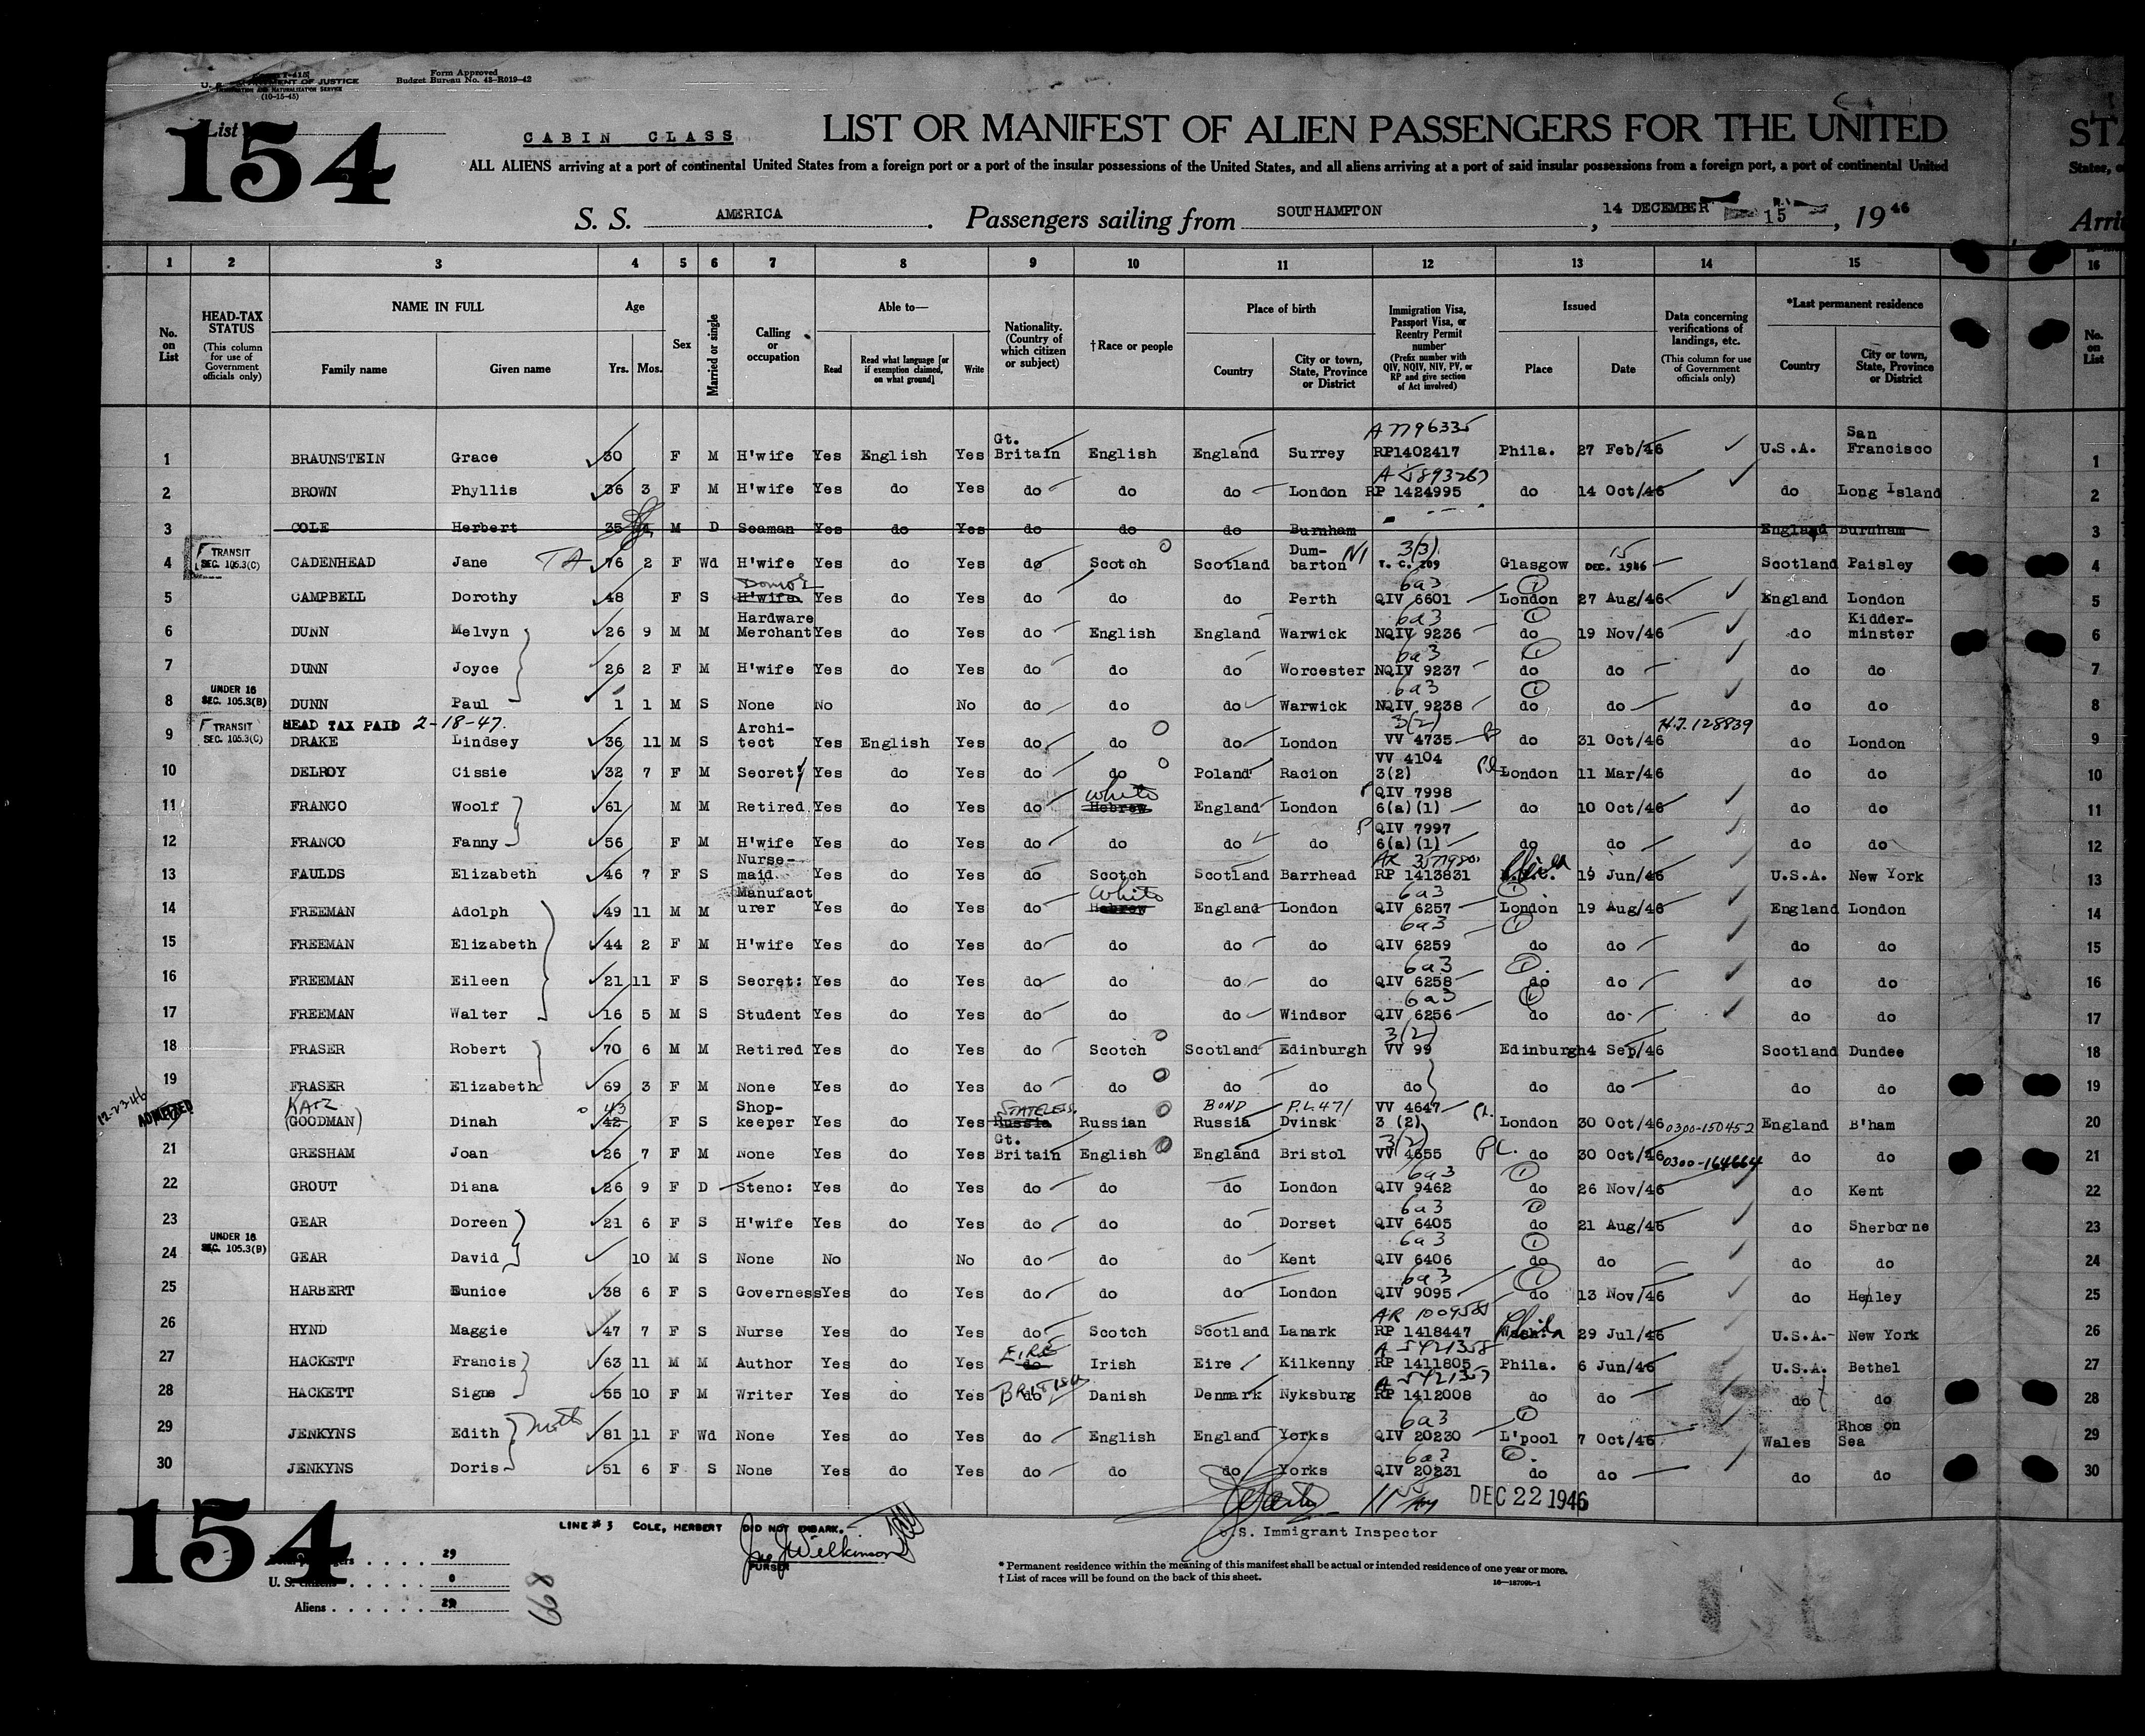 U. S. DEPARTMENT OF JUSTICE
IMMIGRATION AND NATURALIZATION SERVICE
(10-15-45)
Form Approved
Budget Bureau No. 43-R019-42
List
154
CABIN CLASS
LIST OR MANIFEST OF ALIEN PASSENGERS FOR THE UNITED STA
ALL ALIENS arriving at a port of continental United States from a foreign port or a port of the insular possessions of the United States, and all aliens arriving at a port of said insular possessions from a foreign port, a port of continental United States, o
S. S. AMERICA. Passengers sailing from SOUTHAMPTON, 14 DECEMBER 15, 1946 Arri
1 2 3 4 5 6 7 8 9 10 11 12 13 14 15 16
No. on List
HEAD-TAX STATUS (This column for use of Government officials only)
NAME IN FULL Family name Given name
Age Yrs. Mos.
Sex
Married or single
Calling or occupation
Able to— Read Read what language [or if exemption claimed, on what ground] Write
Nationality. (Country of which citizen or subject)
†Race or people
Place of birth Country City or town, State, Province or District
Immigration Visa, Passport Visa, or Reentry Permit number (Prefix number with QIV, NQIV, NIV, PV, or RP and give section of Act involved)
Issued Place Date
Data concerning verifications of landings, etc. (This column for use of Government officials only)
*Last permanent residence Country City or town, State, Province or District
No. on List
1 BRAUNSTEIN Grace 30 F M H'wife Yes English Yes Gt. Britain English England Surrey A7796335 RP1402417 Phila. 27 Feb/46 U.S.A. San Francisco 1
2 BROWN Phyllis 36 3 F M H'wife Yes do Yes do do do London RP 1424995 do 14 Oct/46 do Long Island 2
3 COLE Herbert 35 M D Seaman Yes do Yes do do do Burnham England Burnham 3
4 TRANSIT SEC. 105.3(C) CADENHEAD Jane TA 76 2 F Wd H'wife Yes do Yes do Scotch Scotland Dum-barton NI 3(3) T. C. 209 Glasgow 15 DEC. 1946 Scotland Paisley 4
5 CAMPBELL Dorothy 48 F S H'wife Yes do Yes do do do Perth 6a3 QIV 6601 London 27 Aug/46 England London 5
6 DUNN Melvyn 26 9 M M Hardware Merchant Yes do Yes do English England Warwick 6a3 NQIV 9236 do 19 Nov/46 do Kidder-minster 6
7 DUNN Joyce 26 2 F M H'wife Yes do Yes do do do Worcester 6a3 NQIV 9237 do do do do 7
8 UNDER 16 SEC. 105.3(B) DUNN Paul 1 1 M S None No No do do do Warwick 6a3 NQIV 9238 do do do do 8
HEAD TAX PAID 2-18-47.
9 TRANSIT SEC. 105.3(C) DRAKE Lindsey 36 11 M S Archi-tect Yes English Yes do do do London 3(2) VV 4735 do 31 Oct/46 H.T. 128839 do London 9
10 DELROY Cissie 32 7 F M Secret: Yes do Yes do do Poland Racion VV 4104 3(2) London 11 Mar/46 do do 10
11 FRANCO Woolf 61 M M Retired Yes do Yes do White Hebrew England London QIV 7998 6(a)(1) do 10 Oct/46 do do 11
12 FRANCO Fanny 56 F M H'wife Yes do Yes do do do do QIV 7997 6(a)(1) do do do do 12
13 FAULDS Elizabeth 46 7 F S Nurse-maid. Yes do Yes do Scotch Scotland Barrhead RP 1413831 19 Jun/46 U.S.A. New York 13
14 FREEMAN Adolph 49 11 M M Manufact urer Yes do Yes do White Hebrew England London 6a3 QIV 6257 London 19 Aug/46 England London 14
15 FREEMAN Elizabeth 44 2 F M H'wife Yes do Yes do do do do 6a3 QIV 6259 do do do do 15
16 FREEMAN Eileen 21 11 F S Secret: Yes do Yes do do do do 6a3 QIV 6258 do do do do 16
17 FREEMAN Walter 16 5 M S Student Yes do Yes do do do Windsor 6a3 QIV 6256 do do do do 17
18 FRASER Robert 70 6 M M Retired Yes do Yes do Scotch Scotland Edinburgh 3(2) VV 99 Edinburgh 4 Sep/46 Scotland Dundee 18
19 FRASER Elizabeth 69 3 F M None Yes do Yes do do do do do do do do do 19
12-23-46 ADMITTED
20 KATZ (GOODMAN) Dinah 43 42 F S Shop-keeper Yes do Yes STATELESS Russia Russian BOND Russia P.L. 471 Dvinsk VV 4647 3 (2) London 30 Oct/46 0300-150452 England B'ham 20
21 GRESHAM Joan 26 7 F M None Yes do Yes Gt. Britain English England Bristol 3(2) VV 4655 do 30 Oct/46 0300-164664 do do 21
22 GROUT Diana 26 9 F D Steno: Yes do Yes do do do London 6a3 QIV 9462 do 26 Nov/46 do Kent 22
23 GEAR Doreen 21 6 F S H'wife Yes do Yes do do do Dorset 6a3 QIV 6405 do 21 Aug/46 do Sherborne 23
24 UNDER 16 SEC. 105.3(B) GEAR David 10 M S None No No do do do Kent 6a3 QIV 6406 do do do do 24
25 HARBERT Eunice 38 6 F S Governess Yes do Yes do do do London 6a3 QIV 9095 do 13 Nov/46 do Henley 25
26 HYND Maggie 47 7 F S Nurse Yes do Yes do Scotch Scotland Lanark RP 1418447 Phila 29 Jul/46 U.S.A. New York 26
27 HACKETT Francis 63 11 M M Author Yes do Yes EIRE do Irish Eire Kilkenny A 5421358 RP 1411805 Phila. 6 Jun/46 U.S.A. Bethel 27
28 HACKETT Signe 55 10 F M Writer Yes do Yes BRITISH do Danish Denmark Nyksburg RP 1412008 do do do do 28
29 JENKYNS Edith 81 11 F Wd None Yes do Yes do English England Yorks 6a3 QIV 20230 L'pool 7 Oct/46 Wales Rhos on Sea 29
30 JENKYNS Doris 51 6 F S None Yes do Yes do do do Yorks 6a3 QIV 20231 do do do do 30
DEC 22 1946
154
LINE # 3 COLE, HERBERT DID NOT EMBARK.
U.S. Immigrant Inspector
Wilkinson
PURSER
29
U. S. citizens 0
Aliens 29
668
* Permanent residence within the meaning of this manifest shall be actual or intended residence of one year or more.
† List of races will be found on the back of this sheet.
16—18709b-1